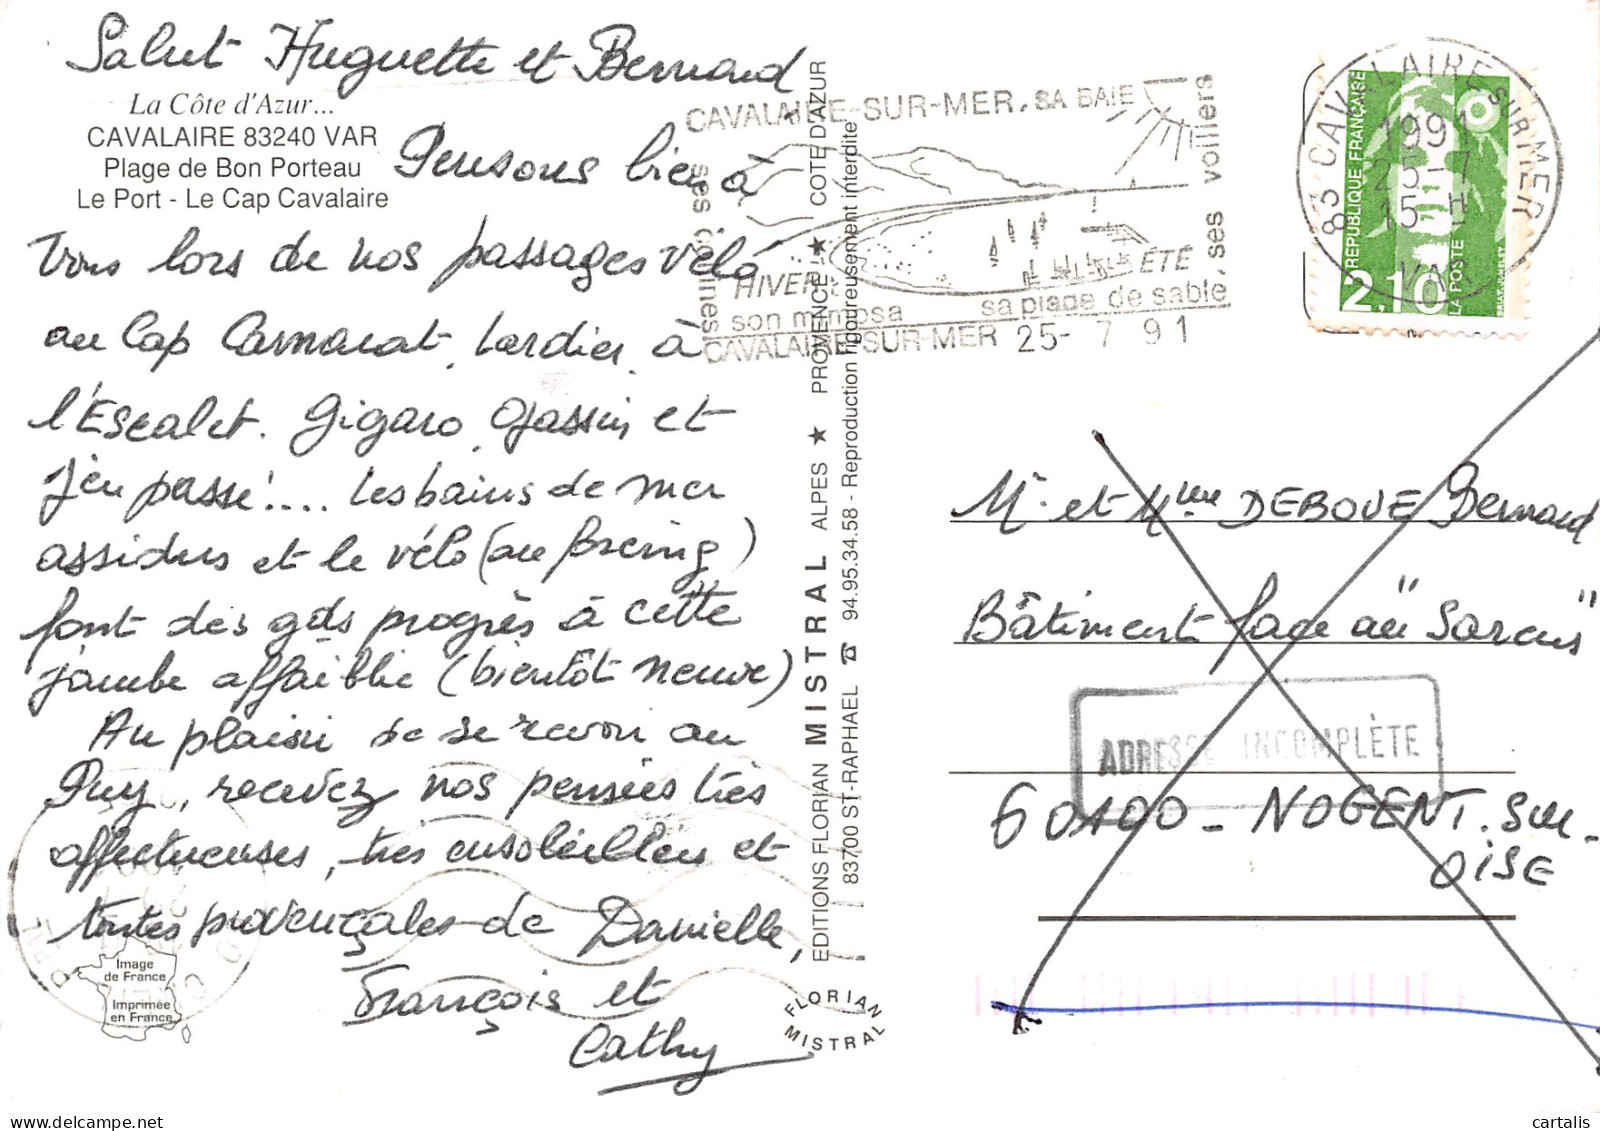 Salut Huguette et Bernard
La Côte d'Azur...
CAVALAIRE 83240 VAR
Plage de Bon Porteau
Le Port - Le Cap Cavalaire
Pensons bien à
vous lors de nos passages vélo
au Cap Camarat, Lardier, à
l'Escalet. Gigaro, Gassin et
j'en passe!.... Les bains de mer
assidus et le vélo (au forcing)
font des gds progrès à cette
jambe affaiblie (bientôt neuve)
Au plaisir de se revoir au
Puy, recevez nos pensées très
affectueuses, très ensoleillées et
toutes provençales de Danielle,
François et
Cathy
Image
de France
Imprimée
en France
EDITIONS FLORIAN MISTRAL ALPES ★ PROMENCE ★ COTE D'AZUR
83700 ST-RAPHAEL ☎ 94.95.34.58 - Reproduction rigoureusement interdite
FLORIAN
MISTRAL
CAVALAIRE-SUR-MER, SA BAIE
ses collines
ses voiliers
HIVER
son mimosa
ÉTÉ
sa plage de sable,
CAVALAIRE-SUR-MER 25-7 91
83 CAVALAIRE SUR MER
1991
25-7
15 H
VAR
REPUBLIQUE FRANÇAISE
2,10
LA POSTE
Mr et Mme DEBOVE Bernard
Bâtiment face au "Sarcus"
ADRESSE INCOMPLÈTE
60100 - NOGENT. Sur-
OISE
cartalis
delcampe.net